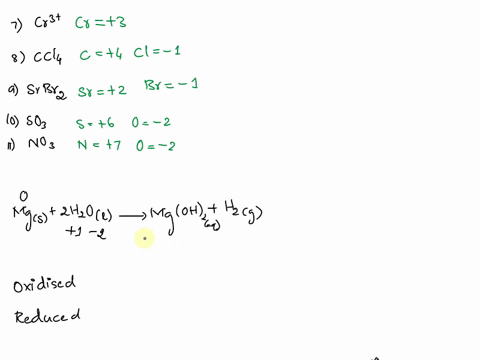 7) Cr³⁺ Cr = +3
8) CCl₄ C = +4 Cl = -1
9) SrBr₂ Sr = +2 Br = -1
10) SO₃ S = +6 O = -2
11) NO₃ N = +7 O = -2
0
Mg(s) + 2H₂O(l) ⟶ Mg(OH)₂(aq) + H₂(g)
+1 -2
Oxidised
Reduced